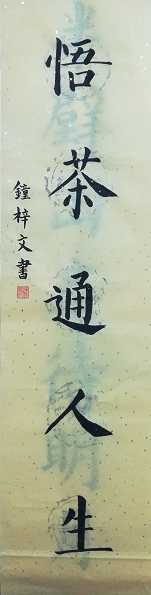 悟茶通人生
鐘梓文書